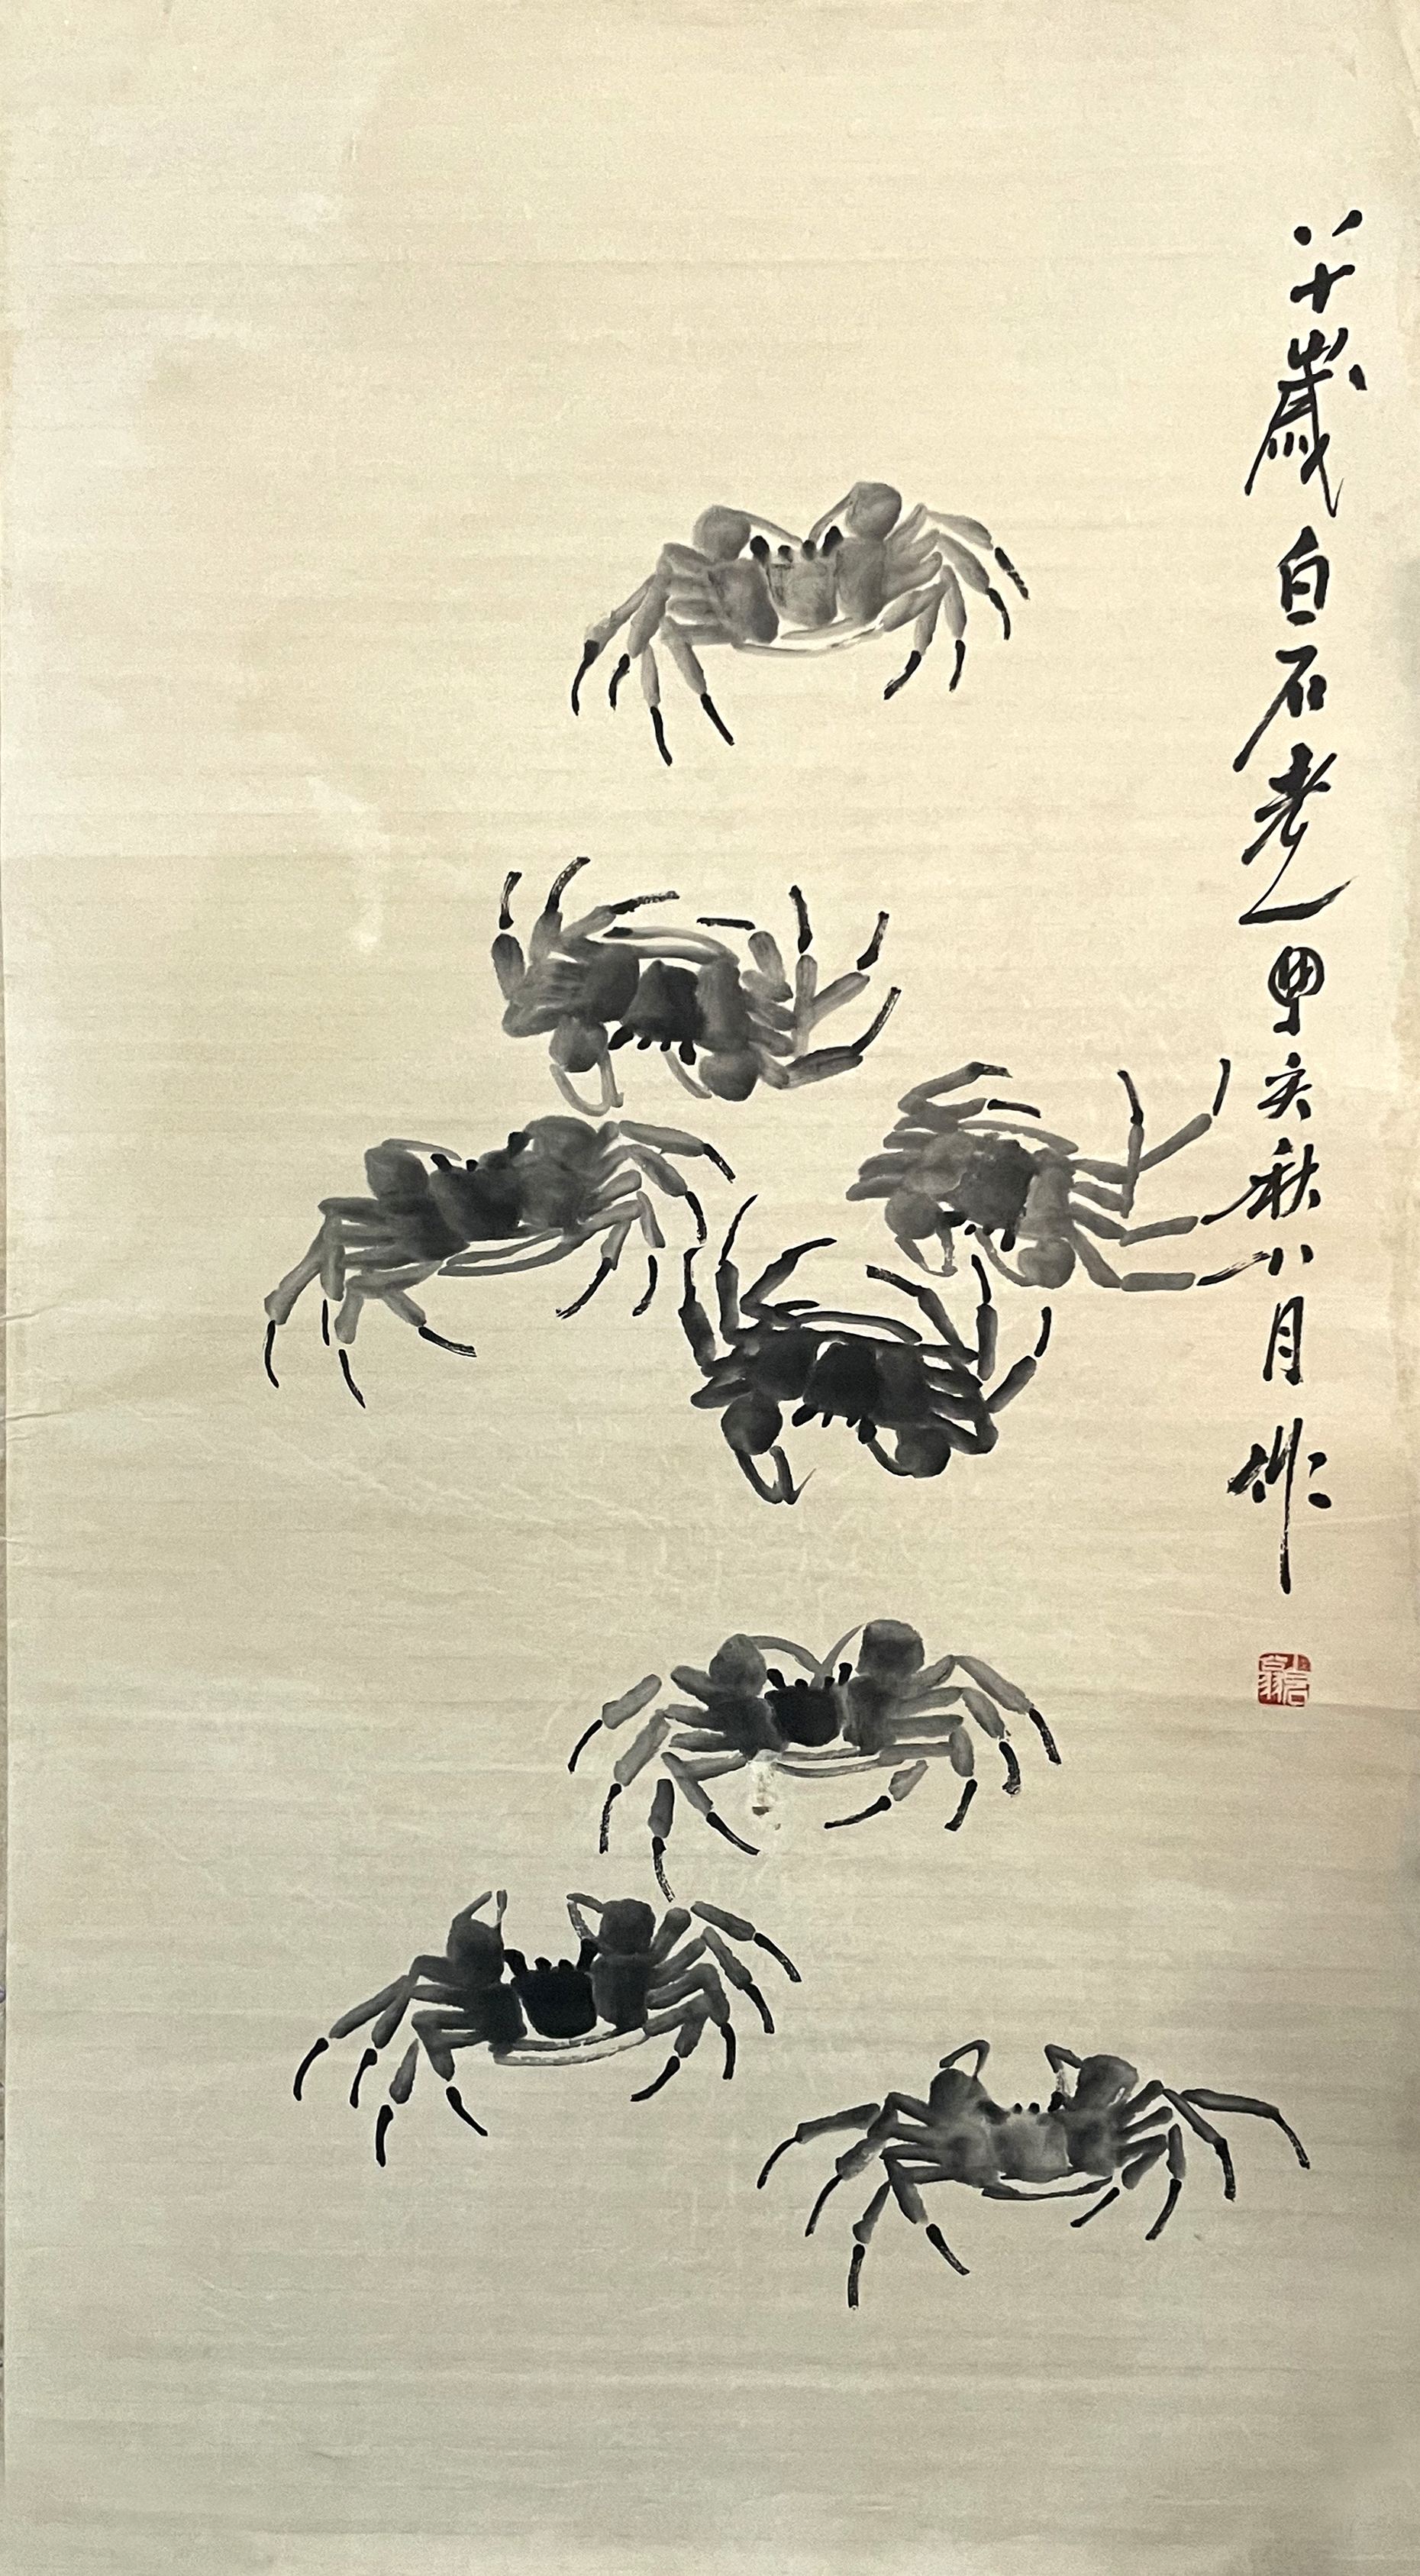 八十歲白石老人甲亥秋八月作